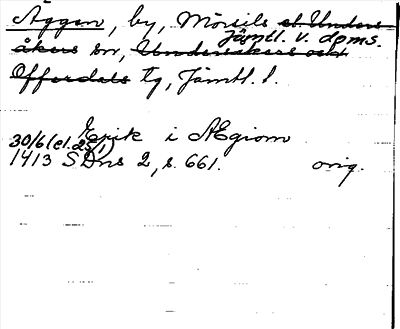 Äggen, by, Mörsils et Unders-
åkers sn, Undersåkers och Jämtl. v. doms.
Offerdals tg, Jämtl. l.
Erik i Ægiom
30/6 (el. 25/1)
1413 SDns 2, s. 661. orig.